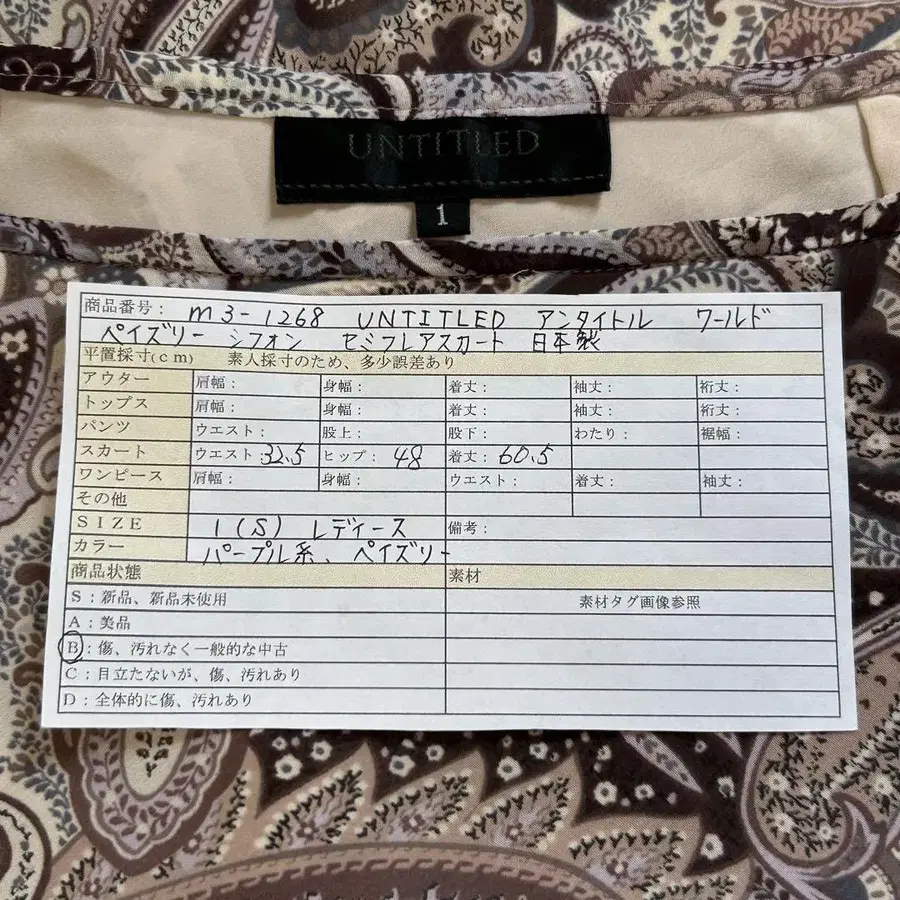 UNTITLED
1
商品番号： m3-1268 UNTITLED アンタイトル ワールド
ペイズリー シフォン セミフレアスカート 日本製
平置採寸(cm) 素人採寸のため、多少誤差あり
アウター 肩幅： 身幅： 着丈： 袖丈： 裄丈：
トップス 肩幅： 身幅： 着丈： 袖丈： 裄丈：
パンツ ウエスト： 股上： 股下： わたり： 裾幅：
スカート ウエスト：32.5 ヒップ：48 着丈：60.5
ワンピース 肩幅： 身幅： ウエスト： 着丈： 袖丈：
その他
SIZE 1(S) レディース 備考：
カラー パープル系、ペイズリー
商品状態 素材
S：新品、新品未使用 素材タグ画像参照
A：美品
B：傷、汚れなく一般的な中古
C：目立たないが、傷、汚れあり
D：全体的に傷、汚れあり